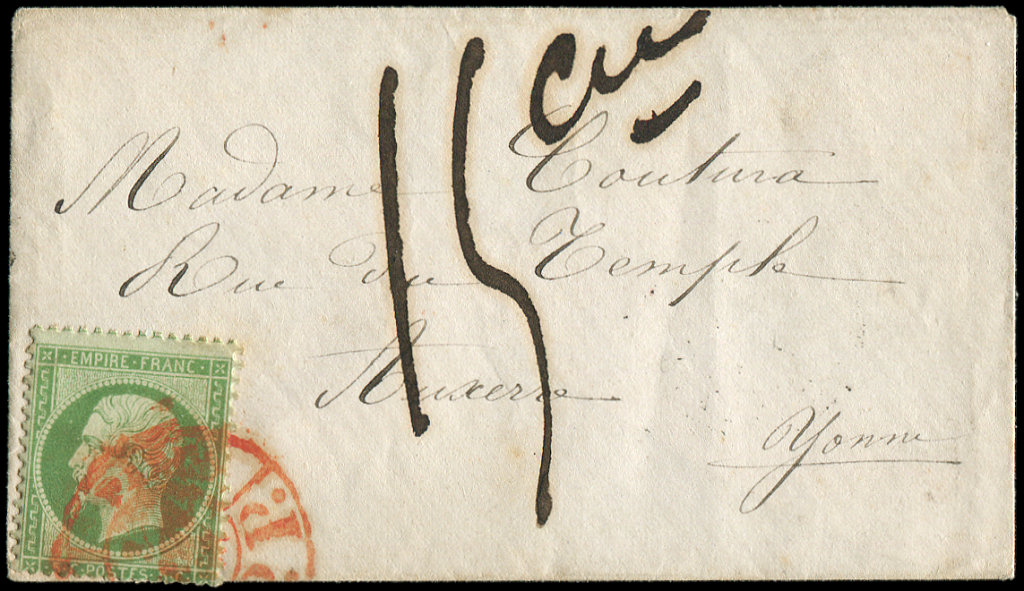 15 Cm
Madame Coutura
Rue du Temple
Auxerre
Yonne
EMPIRE FRANC
POSTES